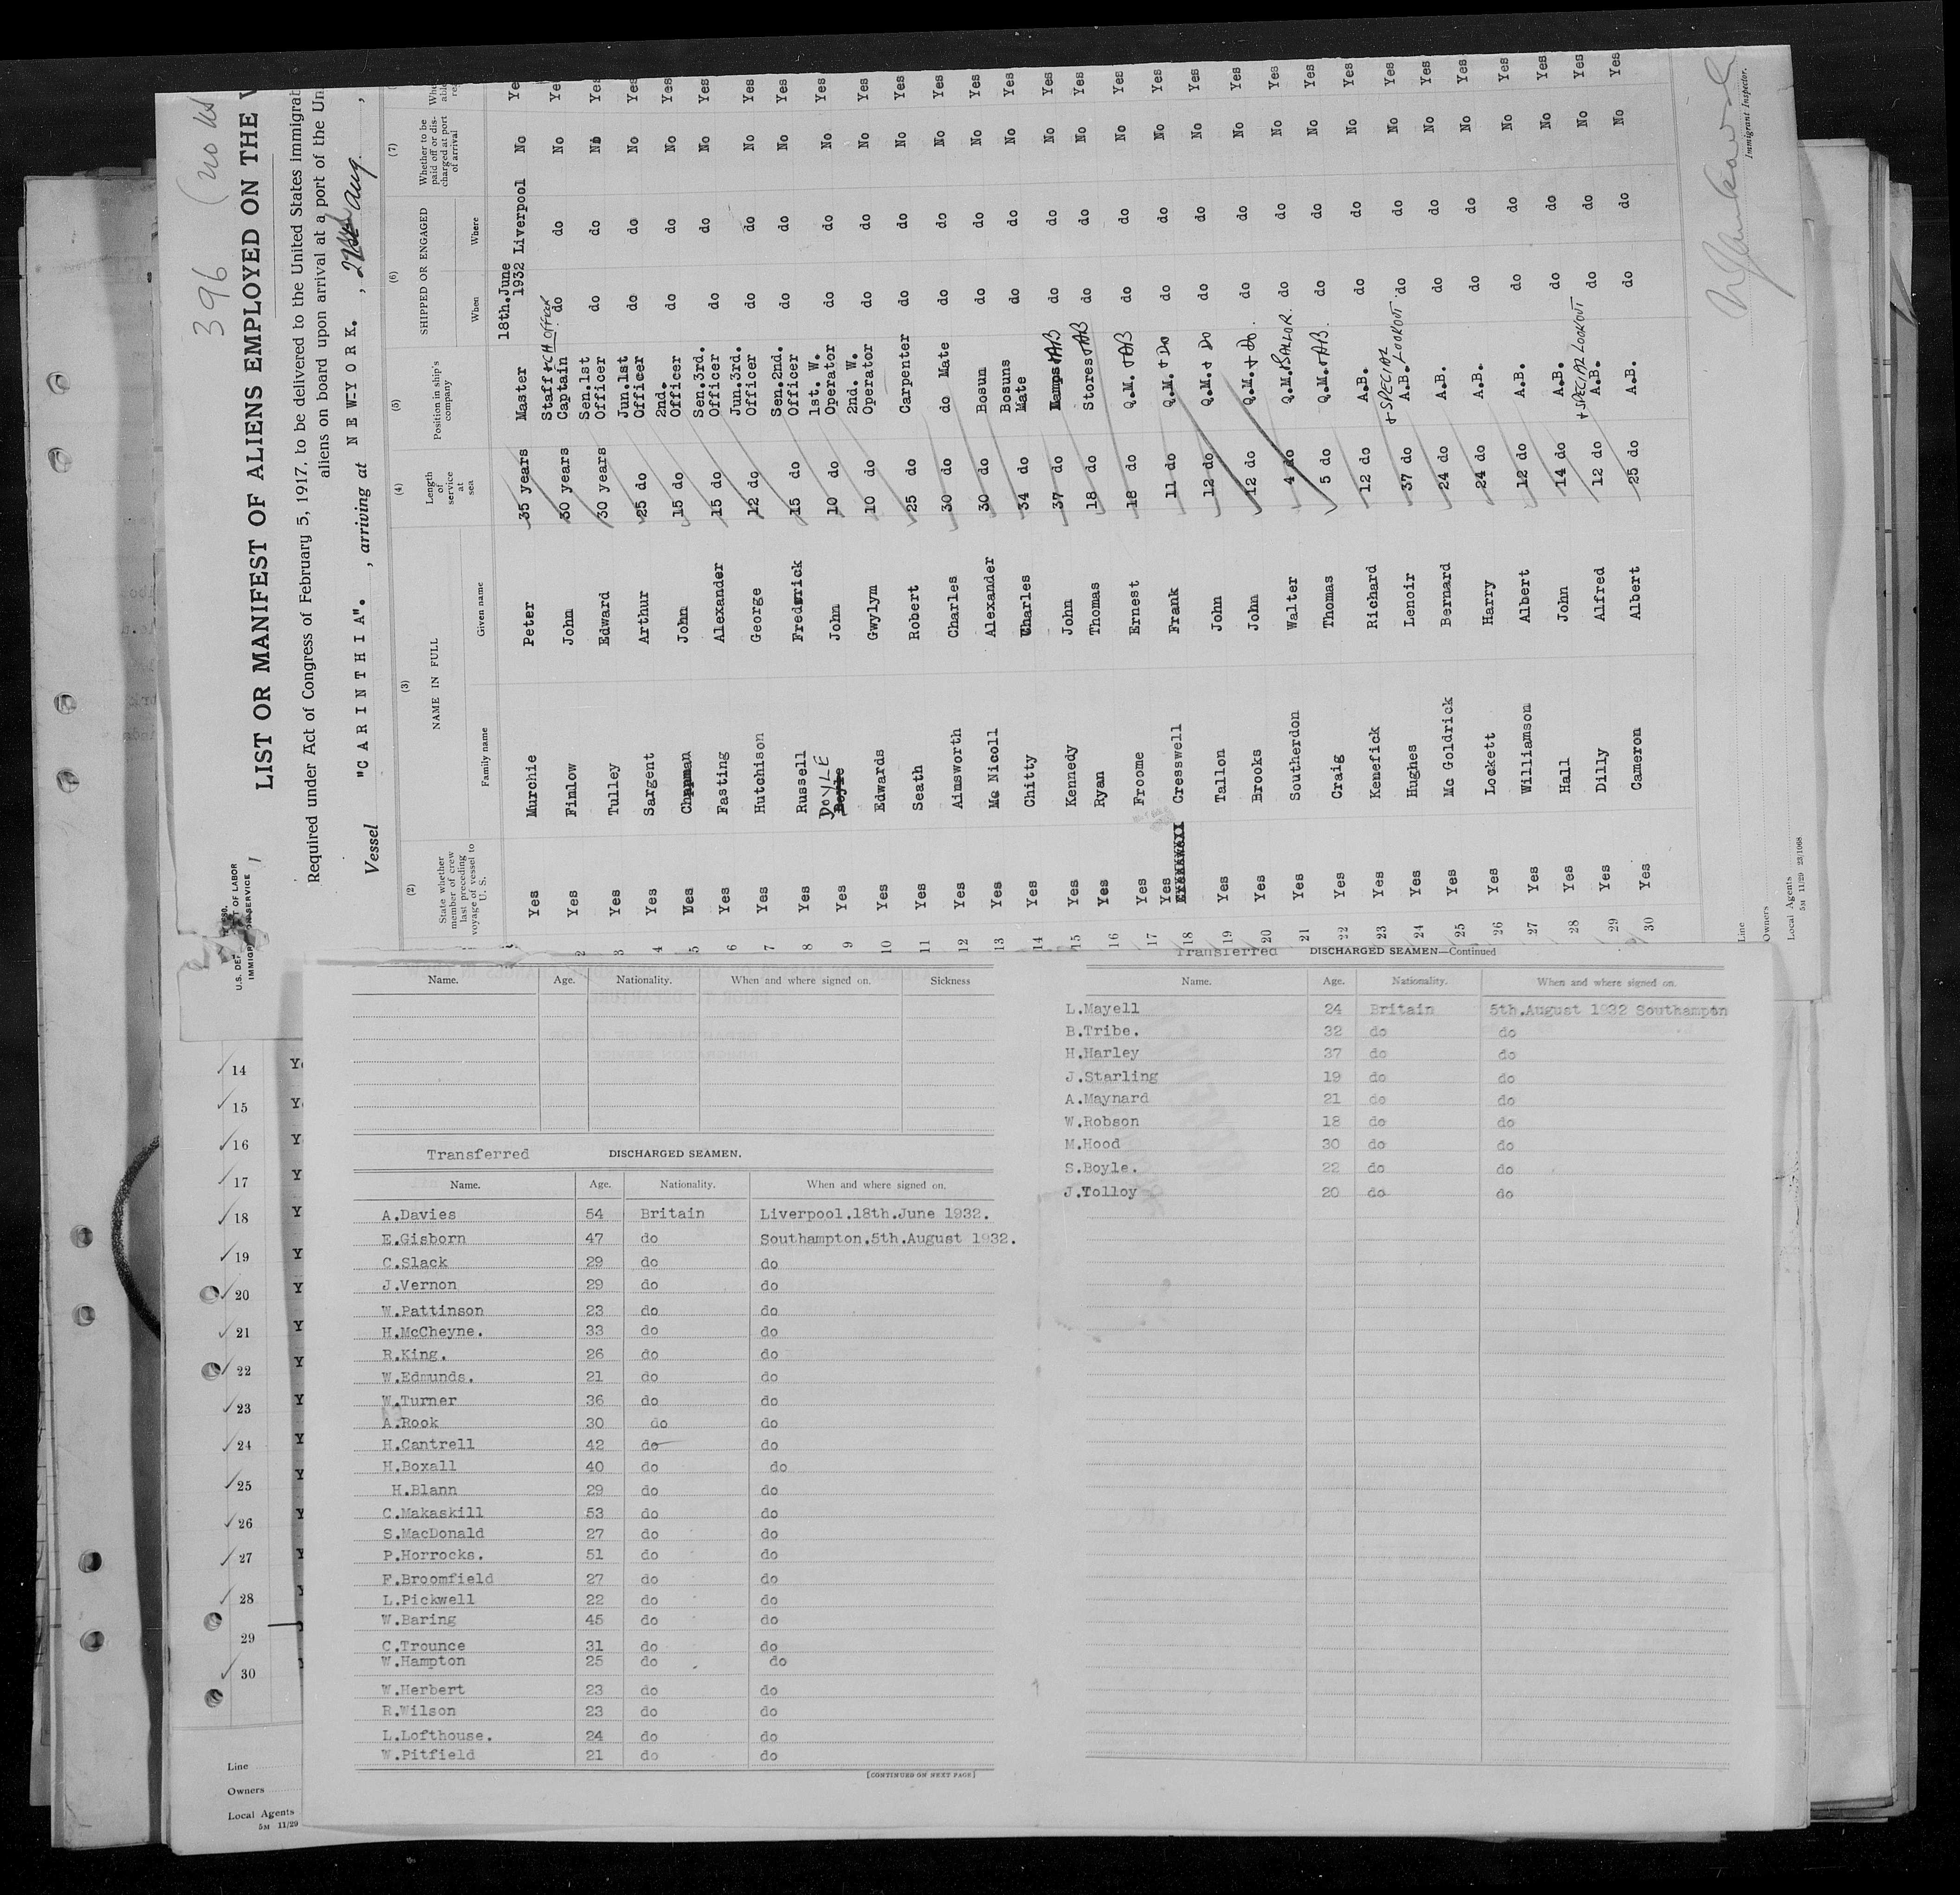 396
LIST OR MANIFEST OF ALIENS EMPLOYED ON THE
Required under Act of Congress of February 5, 1917, to be delivered to the United States immigra
aliens on board upon arrival at a port of the Un
Vessel "CARINTHIA". , arriving at NEW YORK. , Aug. ,
U.S. DE OF LABOR
IMMIGR SERVICE
(2) (3) (4) (5) (6) (7)
State whether member of crew last preceding voyage of vessel to U. S.
NAME IN FULL
Family name Given name
Length of service at sea
Position in ship's company
SHIPPED OR ENGAGED
When Where
Whether to be paid off or discharged at port of arrival
Yes Murchie Peter 35 years Master 18th.June 1932 Liverpool No Yes
2 Yes Finlow John 30 years Staff + CH OFFICER Captain do do No Yes
3 Yes Tulley Edward 30 years Sen.1st Officer do do No Yes
4 Yes Sargent Arthur 25 do Jun.1st Officer do do No Yes
5 Yes Chapman John 15 do 2nd. Officer do do No Yes
6 Yes Fasting Alexander 15 do Sen.3rd. Officer do do No Yes
7 Yes Hutchison George 12 do Jun.3rd. Officer do do No Yes
8 Yes Russell Frederick 15 do Sen.2nd. Officer do do No Yes
9 Yes DOYLE John 10 do 1st. W. Operator do do No Yes
10 Yes Edwards Gwylym 10 do 2nd. W. Operator do do No Yes
11 Yes Seath Robert 25 do Carpenter do do No Yes
12 Yes Ainsworth Charles 30 do do Mate do do No Yes
13 Yes Mc Nicoll Alexander 30 do Bosun do do No Yes
14 Yes Chitty Charles 34 do Bosuns Mate do do No Yes
15 Yes Kennedy John 37 do Lamps + AB do do No Yes
Yes Ryan Thomas 18 do Stores + AB do do No Yes
16 Yes Froome Ernest 18 do Q.M. + AB do do No Yes
17 Yes Cresswell Frank 11 do Q.M. + Do do do No Yes
18
19 Yes Tallon John 12 do Q.M. + Do do do No Yes
20 Yes Brooks John 12 do Q.M. + Do. do do No Yes
21 Yes Southerdon Walter 4 do Q.M. SAILOR. do do No Yes
22 Yes Craig Thomas 5 do Q.M. + AB. do do No Yes
23 Yes Kenefick Richard 12 do A.B. do do No Yes
24 Yes Hughes Lenoir 37 do + SPECIAL A.B. LOOKOUT. do do No Yes
25 Yes Mc Goldrick Bernard 24 do A.B. do do No Yes
26 Yes Lockett Harry 24 do A.B. do do No Yes
27 Yes Williamson Albert 12 do A.B. do do No Yes
28 Yes Hall John 14 do A.B. do do No Yes
29 Yes Dilly Alfred 12 do + SPECIAL LOOKOUT A.B. do do No Yes
30 Yes Cameron Albert 25 do A.B. do do No Yes
Line
Owners
Local Agents
5M 11/29 23/1068
Immigrant Inspector.
Name. Age. Nationality. When and where signed on. Sickness
Transferred DISCHARGED SEAMEN.
Name. Age. Nationality. When and where signed on.
A.Davies 54 Britain Liverpool.18th.June 1932.
E.Gisborn 47 do Southampton.5th.August 1932.
C.Slack 29 do do
J.Vernon 29 do do
W.Pattinson 23 do do
H.McCheyne. 33 do do
R.King. 26 do do
W.Edmunds. 21 do do
W.Turner 36 do do
A.Rook 30 do do
H.Cantrell 42 do do
H.Boxall 40 do do
H.Blann 29 do do
C.Makaskill 53 do do
S.MacDonald 27 do do
P.Horrocks. 51 do do
F.Broomfield 27 do do
L.Pickwell 22 do do
W.Baring 45 do do
C.Trounce 31 do do
W.Hampton 25 do do
W.Herbert 23 do do
R.Wilson 23 do do
L.Lofthouse. 24 do do
W.Pitfield 21 do do
[CONTINUED ON NEXT PAGE]
Transferred DISCHARGED SEAMEN—Continued
Name. Age. Nationality. When and where signed on.
L.Mayell 24 Britain 5th.August 1932 Southampton
B.Tribe. 32 do do
H.Harley 37 do do
J.Starling 19 do do
A.Maynard 21 do do
W.Robson 18 do do
M.Hood 30 do do
S.Boyle. 22 do do
J.Tolloy 20 do do
14
15
16
17
18
19
20
21
22
23
24
25
26
27
28
29
30
Line
Owners
Local Agents
5M 11/29